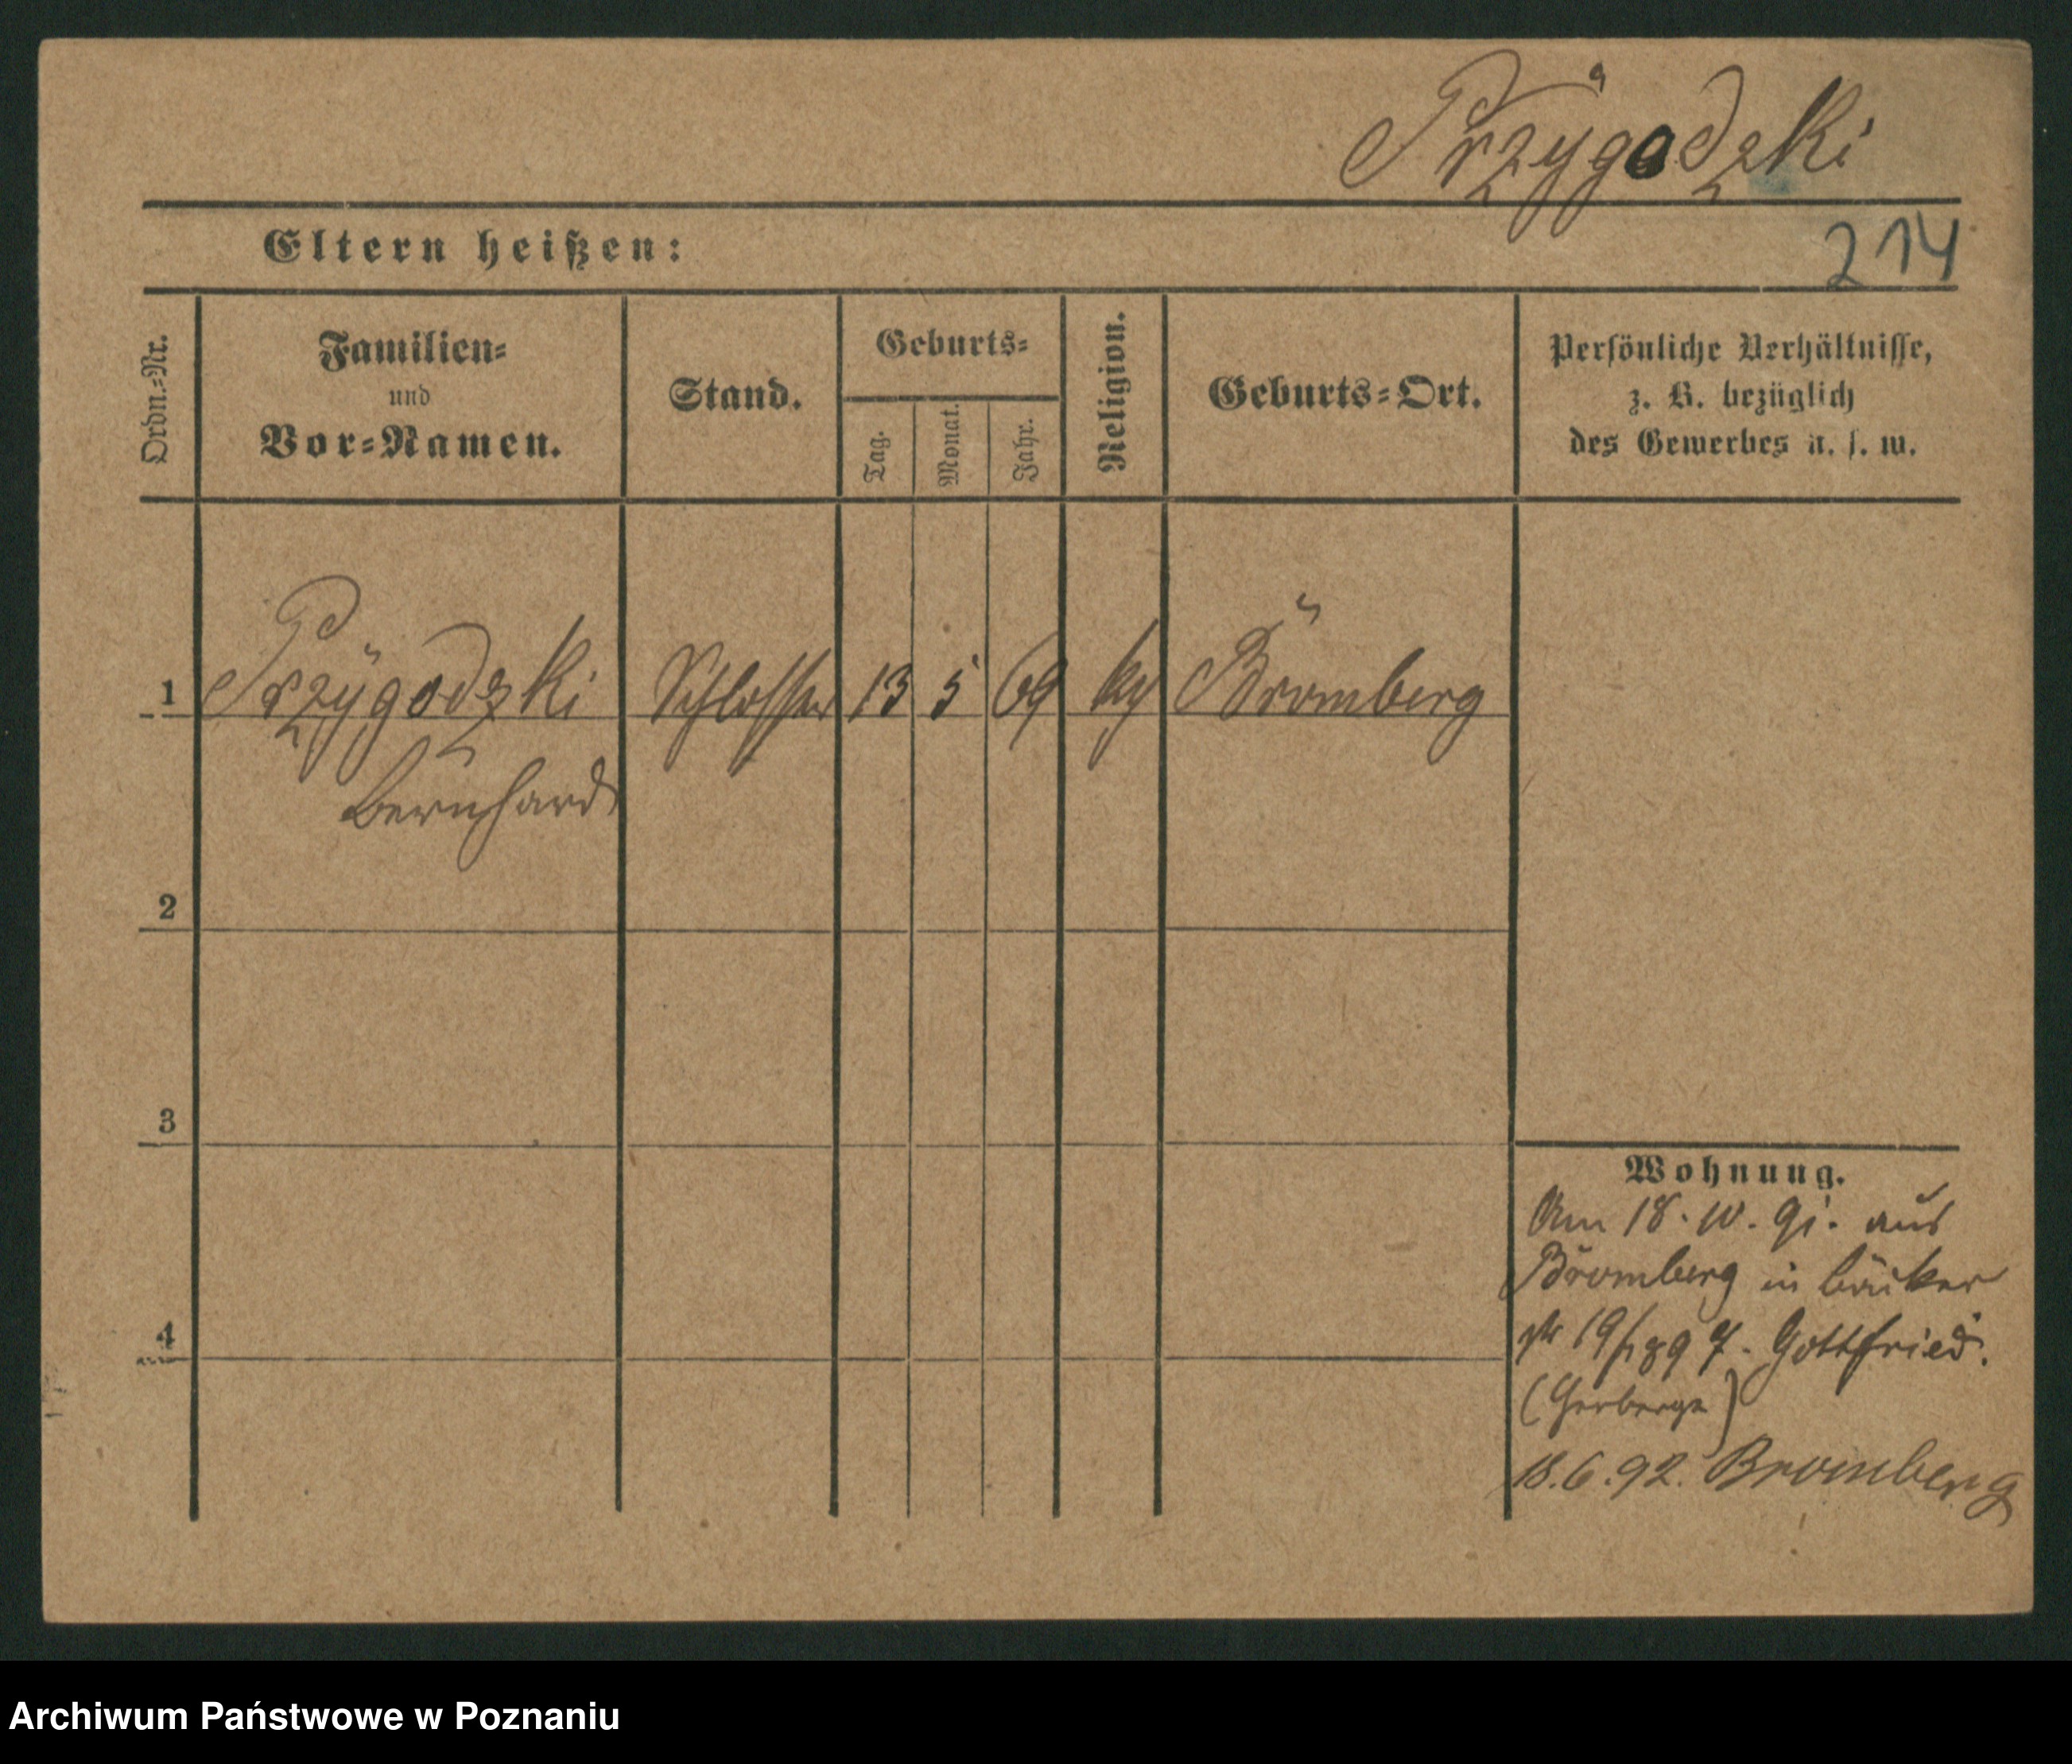 Przygodzki
Eltern heißen:
214
Ordn.-Nr.
Familien-
und
Vor-Namen.
Stand.
Geburts-
Tag.
Monat.
Jahr.
Religion.
Geburts-Ort.
Persönliche Verhältnisse,
z. B. bezüglich
des Gewerbes u. s. w.
1 Przygodzki Schlosser 13 5 69 Bromberg
Bernhard
2
3
4
Wohnung.
Am 18. 10. 91. aus
Bromberg in Bäcker
str 19/ Gottfried.
(Herberge)
18.6.92. Bromberg
Archiwum Państwowe w Poznaniu